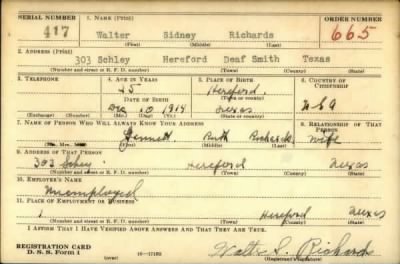 SERIAL NUMBER 1. NAME (Print) ORDER NUMBER
417 Walter Sidney Richards 665
(First) (Middle) (Last)
2. ADDRESS (Print)
303 Schley Hereford Deaf Smith Texas
(Number and street or R. F. D. number) (Town) (County) (State)
3. TELEPHONE 4. AGE IN YEARS 5. PLACE OF BIRTH 6. COUNTRY OF CITIZENSHIP
25 Hereford
DATE OF BIRTH (Town or county)
Dec 10 1914 Texas U S A
(Exchange) (Number) (Mo.) (Day) (Yr.) (State or country)
7. NAME OF PERSON WHO WILL ALWAYS KNOW YOUR ADDRESS 8. RELATIONSHIP OF THAT PERSON
Ruth Richards Wife
(First) (Middle) (Last)
9. ADDRESS OF THAT PERSON
303 Schley Hereford Texas
(Number and street or R. F. D. number) (Town) (County) (State)
10. EMPLOYER'S NAME
Unemployed
11. PLACE OF EMPLOYMENT OR BUSINESS
Hereford Texas
(Number and street or R. F. D. number) (Town) (County) (State)
I AFFIRM THAT I HAVE VERIFIED ABOVE ANSWERS AND THAT THEY ARE TRUE.
REGISTRATION CARD
D. S. S. Form 1 16—17105 Walter S. Richards
(Registrant's signature)